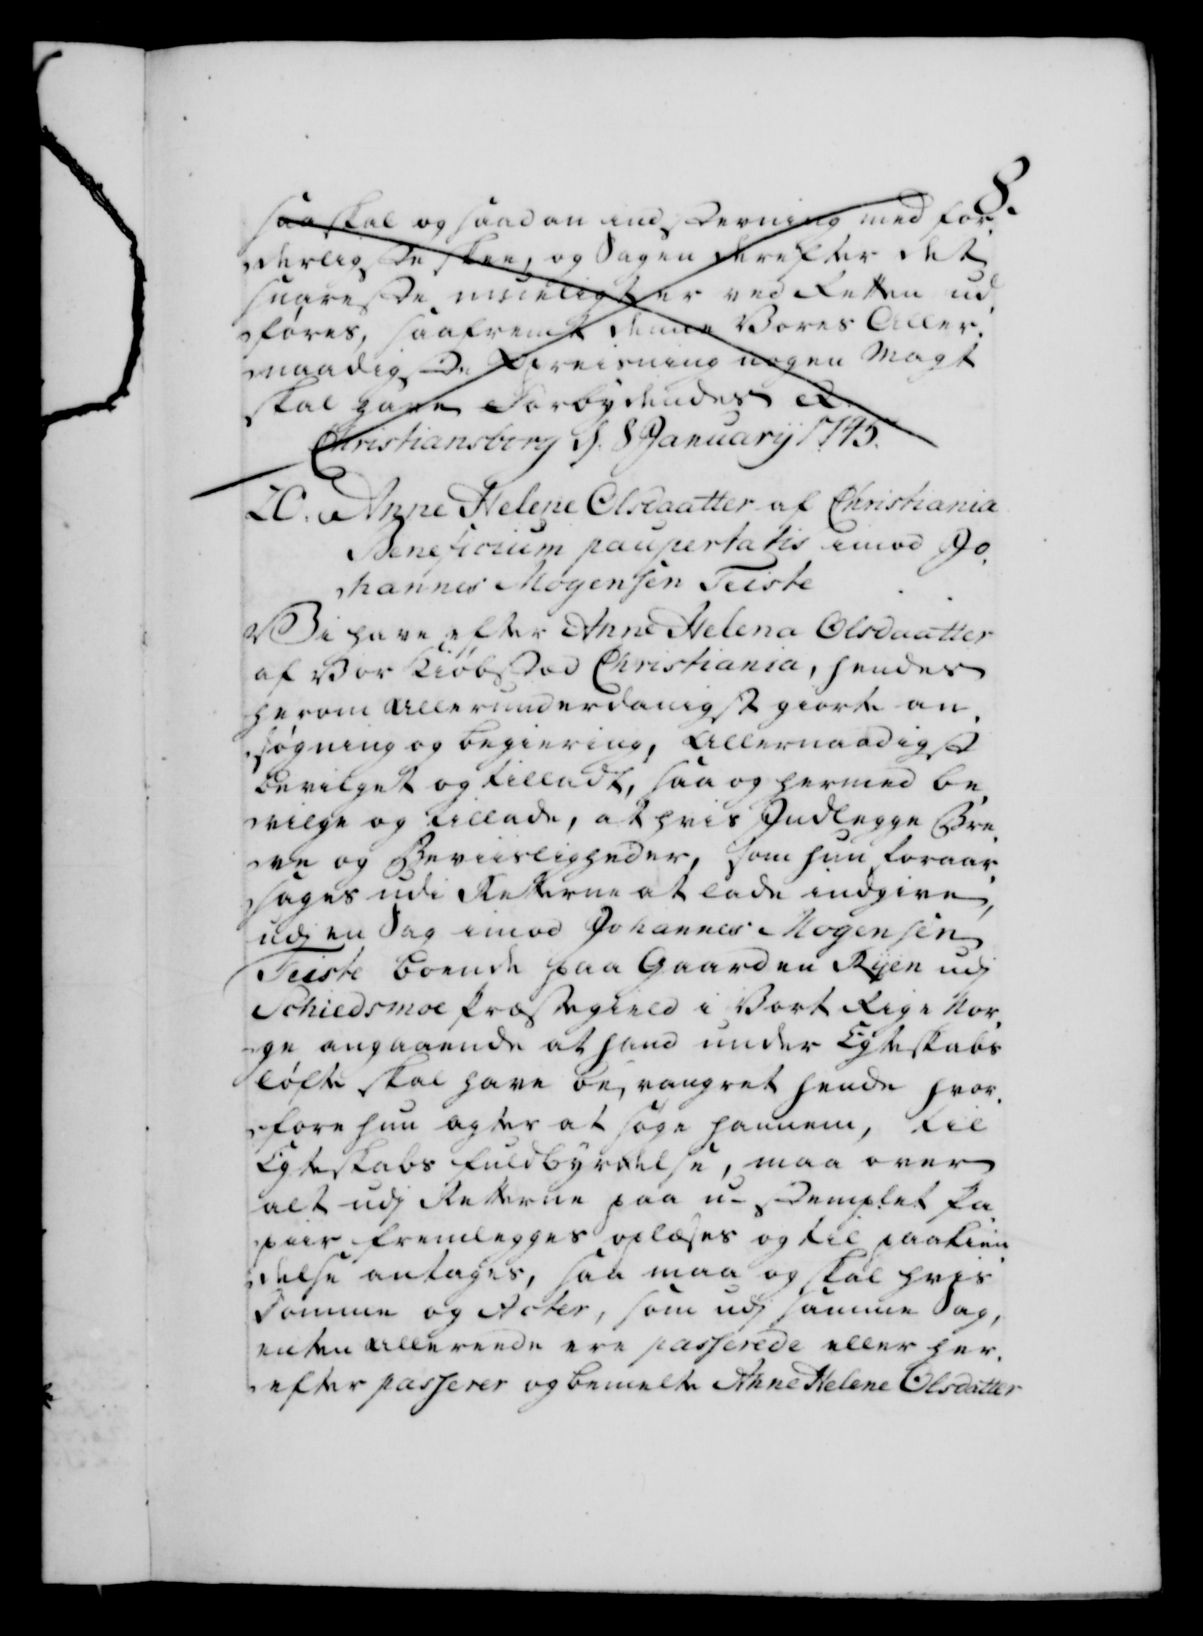 8.
saa skal og saadan indstevning med for-
derligste skee, og Sagen derefter det
snareste mueligt er ved Retten ud-
føres, saafremt denne Vores Aller-
naadigste Opreisning nogen Magt
skal have Forbydendes &.
Christiansborg d. 8 Januarij 1745.
20. Anne Helene Olsdaatter af Christiania
Beneficium paupertatis imod Jo-
hannes Mogensen Teiste
Vi have efter Anne Helena Olsdaatter
af Vor Kiøbstad Christiania, hendes
herom allerunderdanigst giorte an-
søgning og begiering, Allernaadigst
bevilget og tilladt, saa og hermed be-
vilge og tillade, at hvis Indlegge Bre-
ve og Beviisligheder, som hun foraar-
sages udi Retterne at lade indgive,
udj en Sag imod Johannes Mogensen
Teiste boende paa Gaarden Ryen udj
Schiedsmoe Præstegield i Vort Rige Nor-
ge angaaende at hand under Egteskabs
løfte skal have besvangret hende hvor-
fore hun agter at søge hannem, til
Egteskabs fuldbyrdelse, maa over
alt udj Retterne paa u-stemplet Pa-
piir fremlegges oplæses og til paakien-
delse antages, saa maa og skal hvis
Domme og Acter, som udj samme Sag,
enten allereede ere passerede eller her-
efter passerer og bemelte Anne Helene Olsdatter